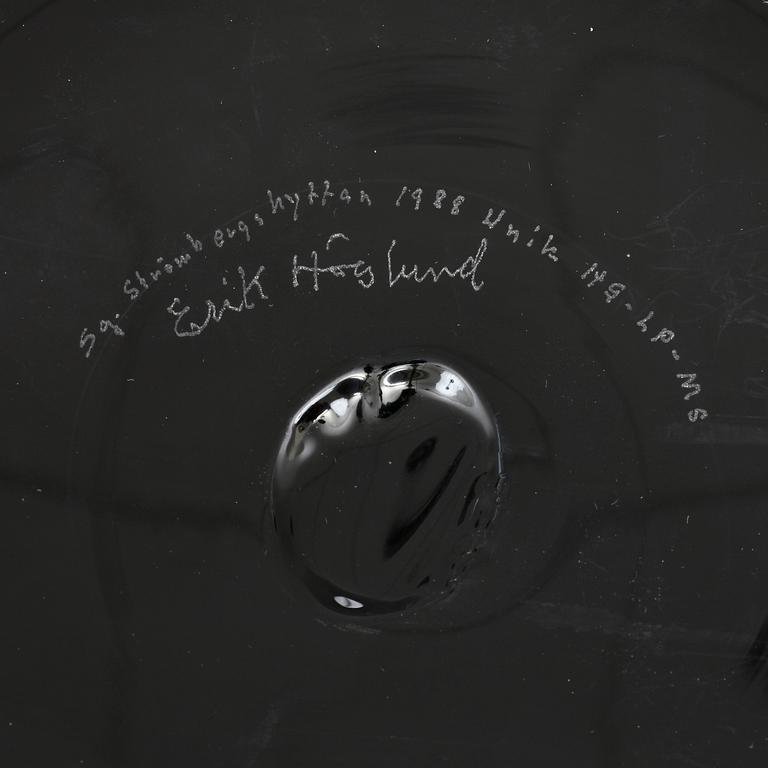 Sg. Strömbergshyttan 1988 Unik 149-LP-MS
Erik Höglund